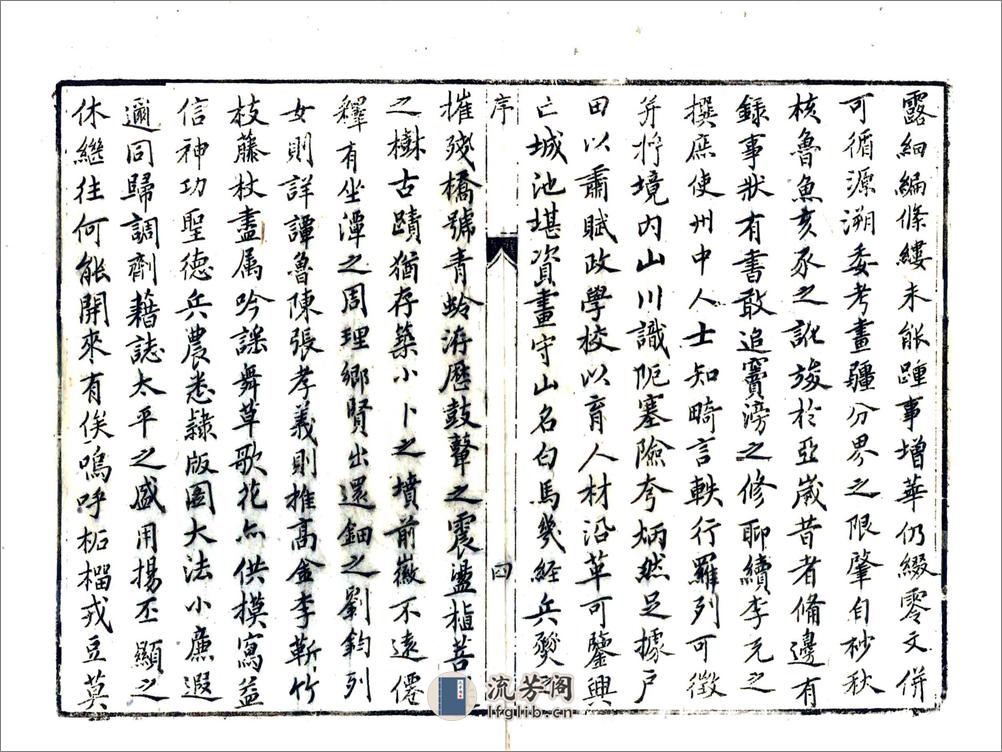 露細編條縷未能踵事增華仍綴零文併
可循源溯委考畫疆分界之限肇自杪秋
核魯魚亥豕之訛竣於亞歲昔者備邊有
錄事狀有書敢追竇滂之修聊續李充之
撰庶使州中人士知畸言軼行羅列可徵
并將境內山川識阨塞險夸炳然足據戶
田以肅賦政學校以育人材沿革可鑒興
亡城池堪資畫守山名白馬幾經兵燹
序 四
摧殘橋號青蛉洊歷鼓鼙之震盪植菩
之樹古蹟猶存築小卜之墳前徽不遠僊
釋有坐潭之周理鄉賢出還鈿之劉鈞列
女則詳譚魯陳張孝義則推高金李蘄竹
枝藤杖盡属吟謠舞草歌花亦供模寫益
信神功聖德兵農悉隸版圖大法小廉遐
邇同歸調劑藉誌太平之盛用揚丕顯之
休繼往何能開來有俟嗚呼柘榴戎豆莫
流芳阁
lfglib.cn